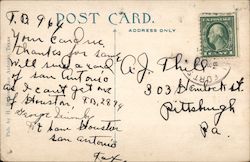 POST CARD.
ADDRESS ONLY
T.B 966
Your Card rec
Thanks for same
will send a card
of San Antonio
as I can't get one
of Houston, T.B. 2879
George
Ft Sam Houston
San Antonio
Tex
A. J. Thill
303 Hemlock St.
Pittsburgh
Pa.